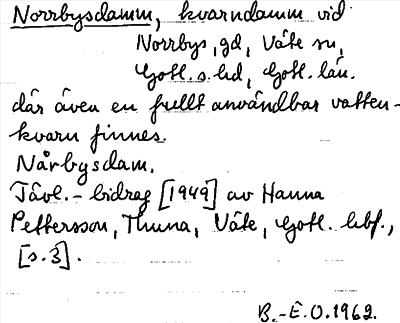 Norrbysdamm, kvarndamm vid
Norrbys, gd, Väte sn,
Gotl. s. hd, Gotl. län.
där även en fullt användbar vatten-
kvarn finnes.
Nårbysdam.
Tävl.- bidrag [1949] av Hanna
Pettersson, Thuna, Väte, Gotl. hbf.,
[s. 3].
B.-E.O. 1962.